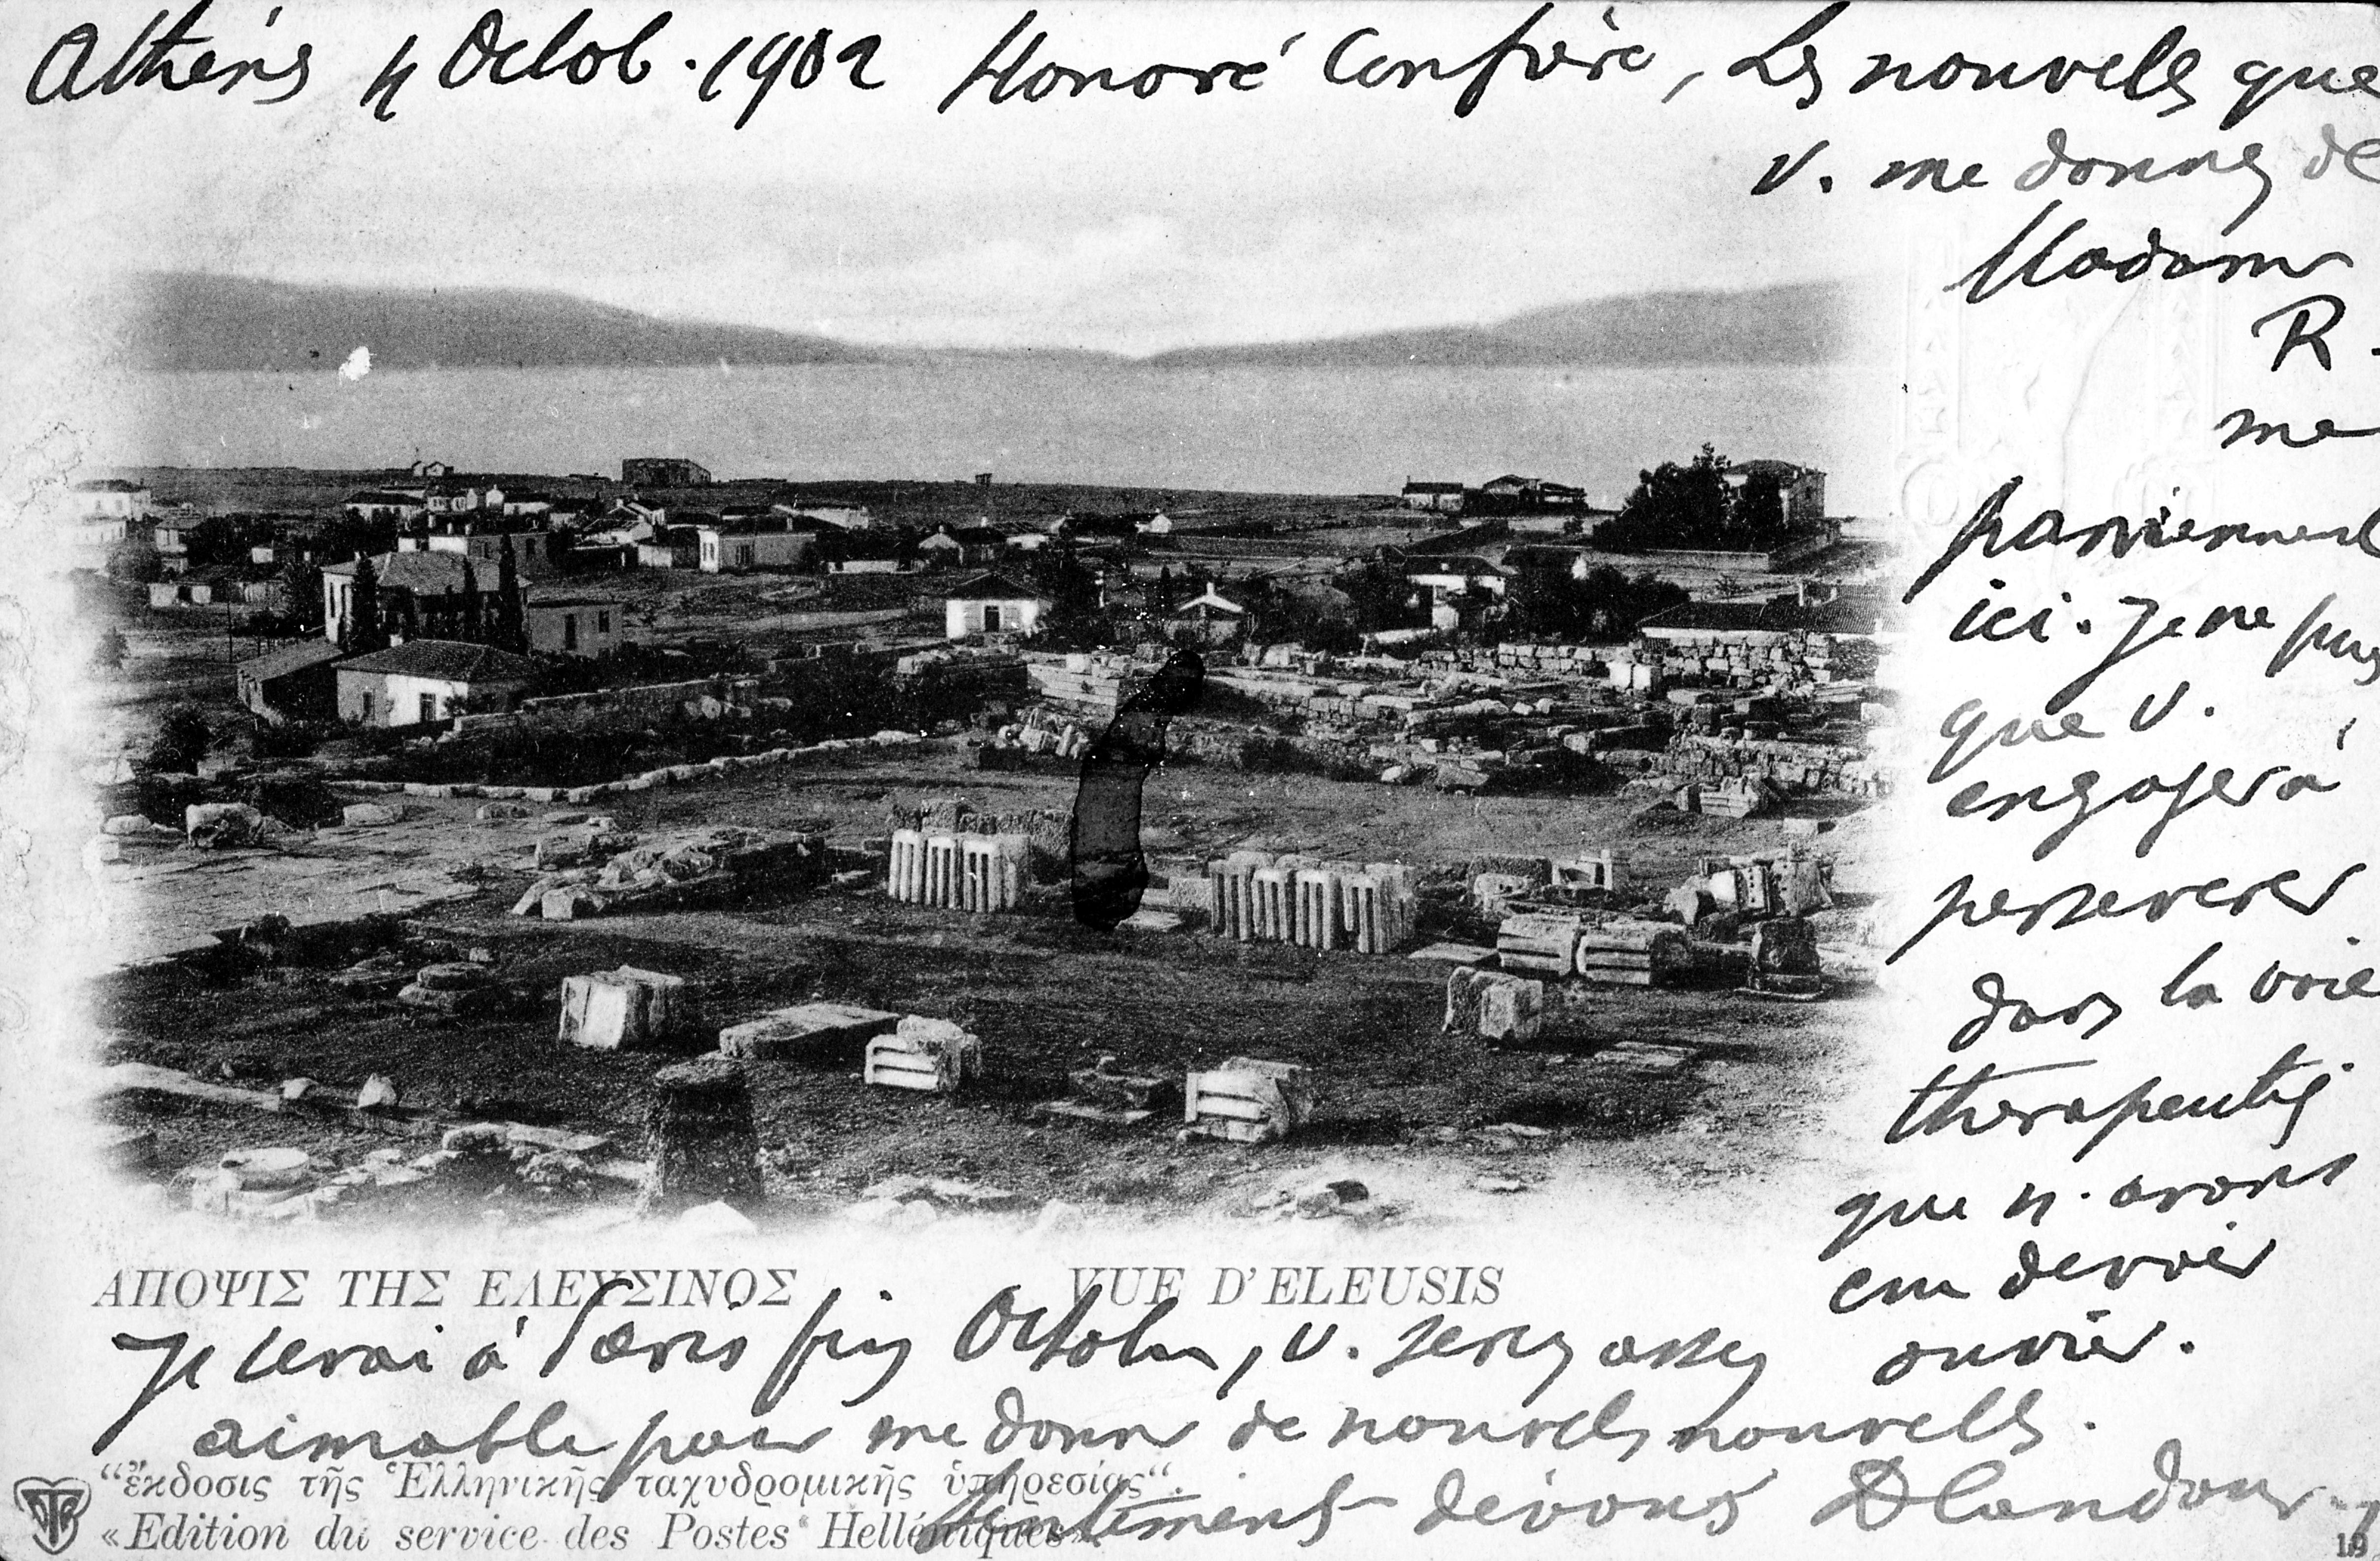 Athèns 4 Octob. 1902 Honoré Confrère, Les nouvels que
v. me donnez de
Madame
R.
me
parviennent
ici. Je ne puis
que v.
engager à
perseverer
dans la voie
therapeutiq
que n. avons
cru devoir
ouvrir.
ΑΠΟΨΙΣ ΤΗΣ ΕΛΕΥΣΙΝΟΣ VUE D'ELEUSIS
Je serai à Paris fin Octobre, v. serez assez
aimable pour me donner de nouvels nouvells.
"ἔκδοσις τῆς Ἑλληνικῆς ταχυδρομικῆς ὑπηρεσίας".
«Edition du service des Postes Helléniques»
Sentiments dévoués
19